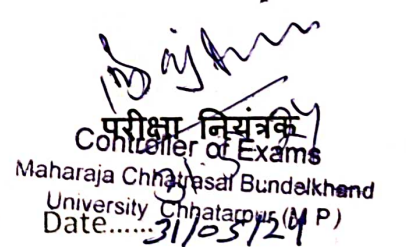 परीक्षा नियंत्रक
Controller of Exams
Maharaja Chhatrasal Bundelkhand
University Chhatarpur (M P)
Date......31/05/24